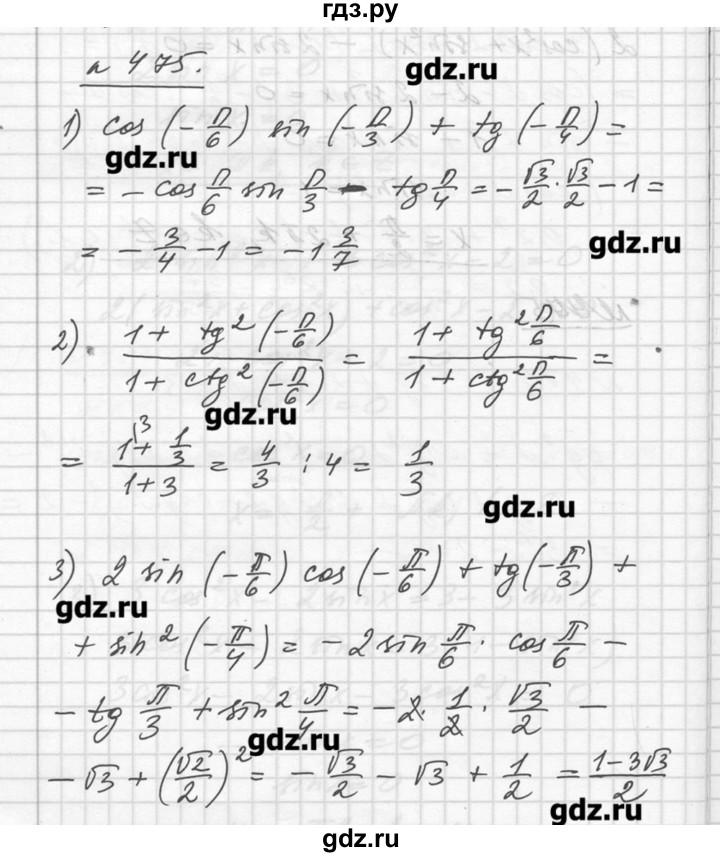 гдз.ру
n 475.
gdz.ru
1) cos (-π/6) sin (-π/3) + tg (-π/4) =
gdz.ru
= - cos π/6 sin π/3 - tg π/4 = - √3/2 · √3/2 - 1 =
gdz.ru
= - 3/4 - 1 = - 1 3/7
2) (1 + tg² (-π/6))/(1 + ctg² (-π/6)) = (1 + tg² π/6)/(1 + ctg² π/6) =
gdz.ru
= (1\3 + 1/3)/(1 + 3) = 4/3 : 4 = 1/3
gdz.ru
3) 2 sin (-π/6) cos (-π/6) + tg (-π/3) +
gdz.ru
+ sin² (-π/4) = - 2 sin π/6 · cos π/6 -
- tg π/3 + sin² π/4 = - 2 · 1/2 · √3/2 -
gdz.ru
- √3 + (√2/2)² = - √3/2 - √3 + 1/2 = (1 - 3√3)/2
gdz.ru
gdz.ru